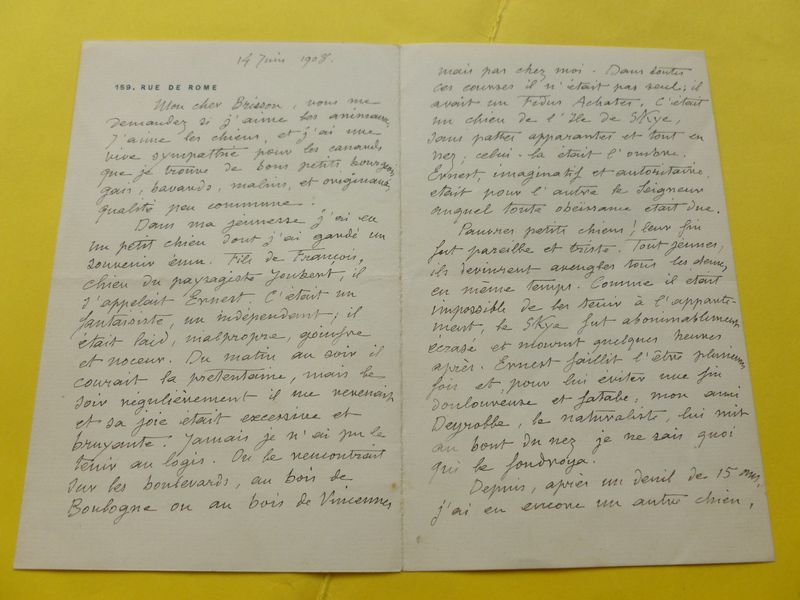 14 Juin 1908.
159. RUE DE ROME
Mon cher Brisson, vous me
demandez si j'aime les animaux,
J'aime les chiens, et j'ai une
vive sympathie pour les canards
que je trouve de bons petits bourgeois
gais, bavards, malins, et originaux,
qualité peu commune !
Dans ma jeunesse j'ai eu
un petit chien dont j'ai gardé un
souvenir ému. Fils de François,
chien du paysagiste Joubert, il
s'appelait Ernest. C'était un
fantaisiste, un indépendant ; il
était laid, malpropre, goinfre
et noceur. Du matin au soir il
courait la pretentaine, mais le
soir régulièrement il me revenait
et sa joie était excessive et
bruyante. Jamais je n'ai pu le
tenir au logis. On le rencontrait
sur les boulevards, au bois de
Boulogne ou au bois de Vincennes
mais pas chez moi. Dans toutes
ces courses il n'était pas seul ; il
avait un Fidus Achates, C'était
un chien de l'Ile de Skye,
sans pattes apparentes et tout en
nez ; celui-là était l'ombre.
Ernest, imaginatif et autoritaire
était pour l'autre le Seigneur
auquel toute obéissance était due.
Pauvres petits chiens ! leur fin
fut pareille et triste. Tout jeunes,
ils devinrent aveugles tous les deux,
en même temps. Comme il était
impossible de les tenir à l'apparte-
ment, le Skye fut abominablement
écrasé et mourut quelques heures
après. Ernest faillit l'être plusieurs
fois et, pour lui éviter une fin
douloureuse et fatale, mon ami
Deyrolle, le naturaliste, lui mit
au bout du nez je ne sais quoi
qui le foudroya.
Depuis, après un deuil de 15 ans,
j'ai eu encore un autre chien,